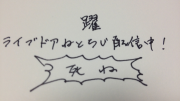 躍
ライブドアねとらじ配信中!
死ね